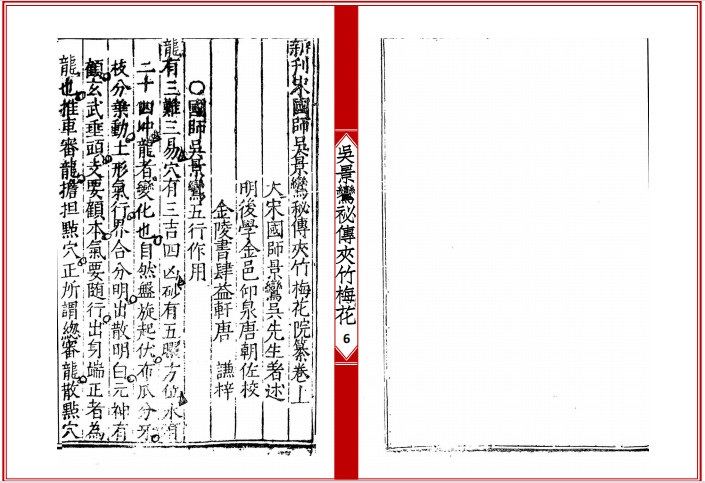 新刊宋國師吳景鸞秘傳夾竹梅花院纂卷上
大宋國師景鸞吳先生著述
明後學金邑仰泉唐朝佐校
金陵書肆益軒唐 謙梓
○國師吳景鸞五行作用
龍有三難三易穴有三吉四凶砂有五
二十四冲龍者變化也自然盤旋起伏布瓜分牙
枝分業動土形氣行界合分明出散明白元神有
顧玄武垂頭支要顧本氣要随行出身端正者為
龍也推車審龍擔担點穴正所謂總審龍散點穴
吳景鸞祕傳夾竹梅花
6